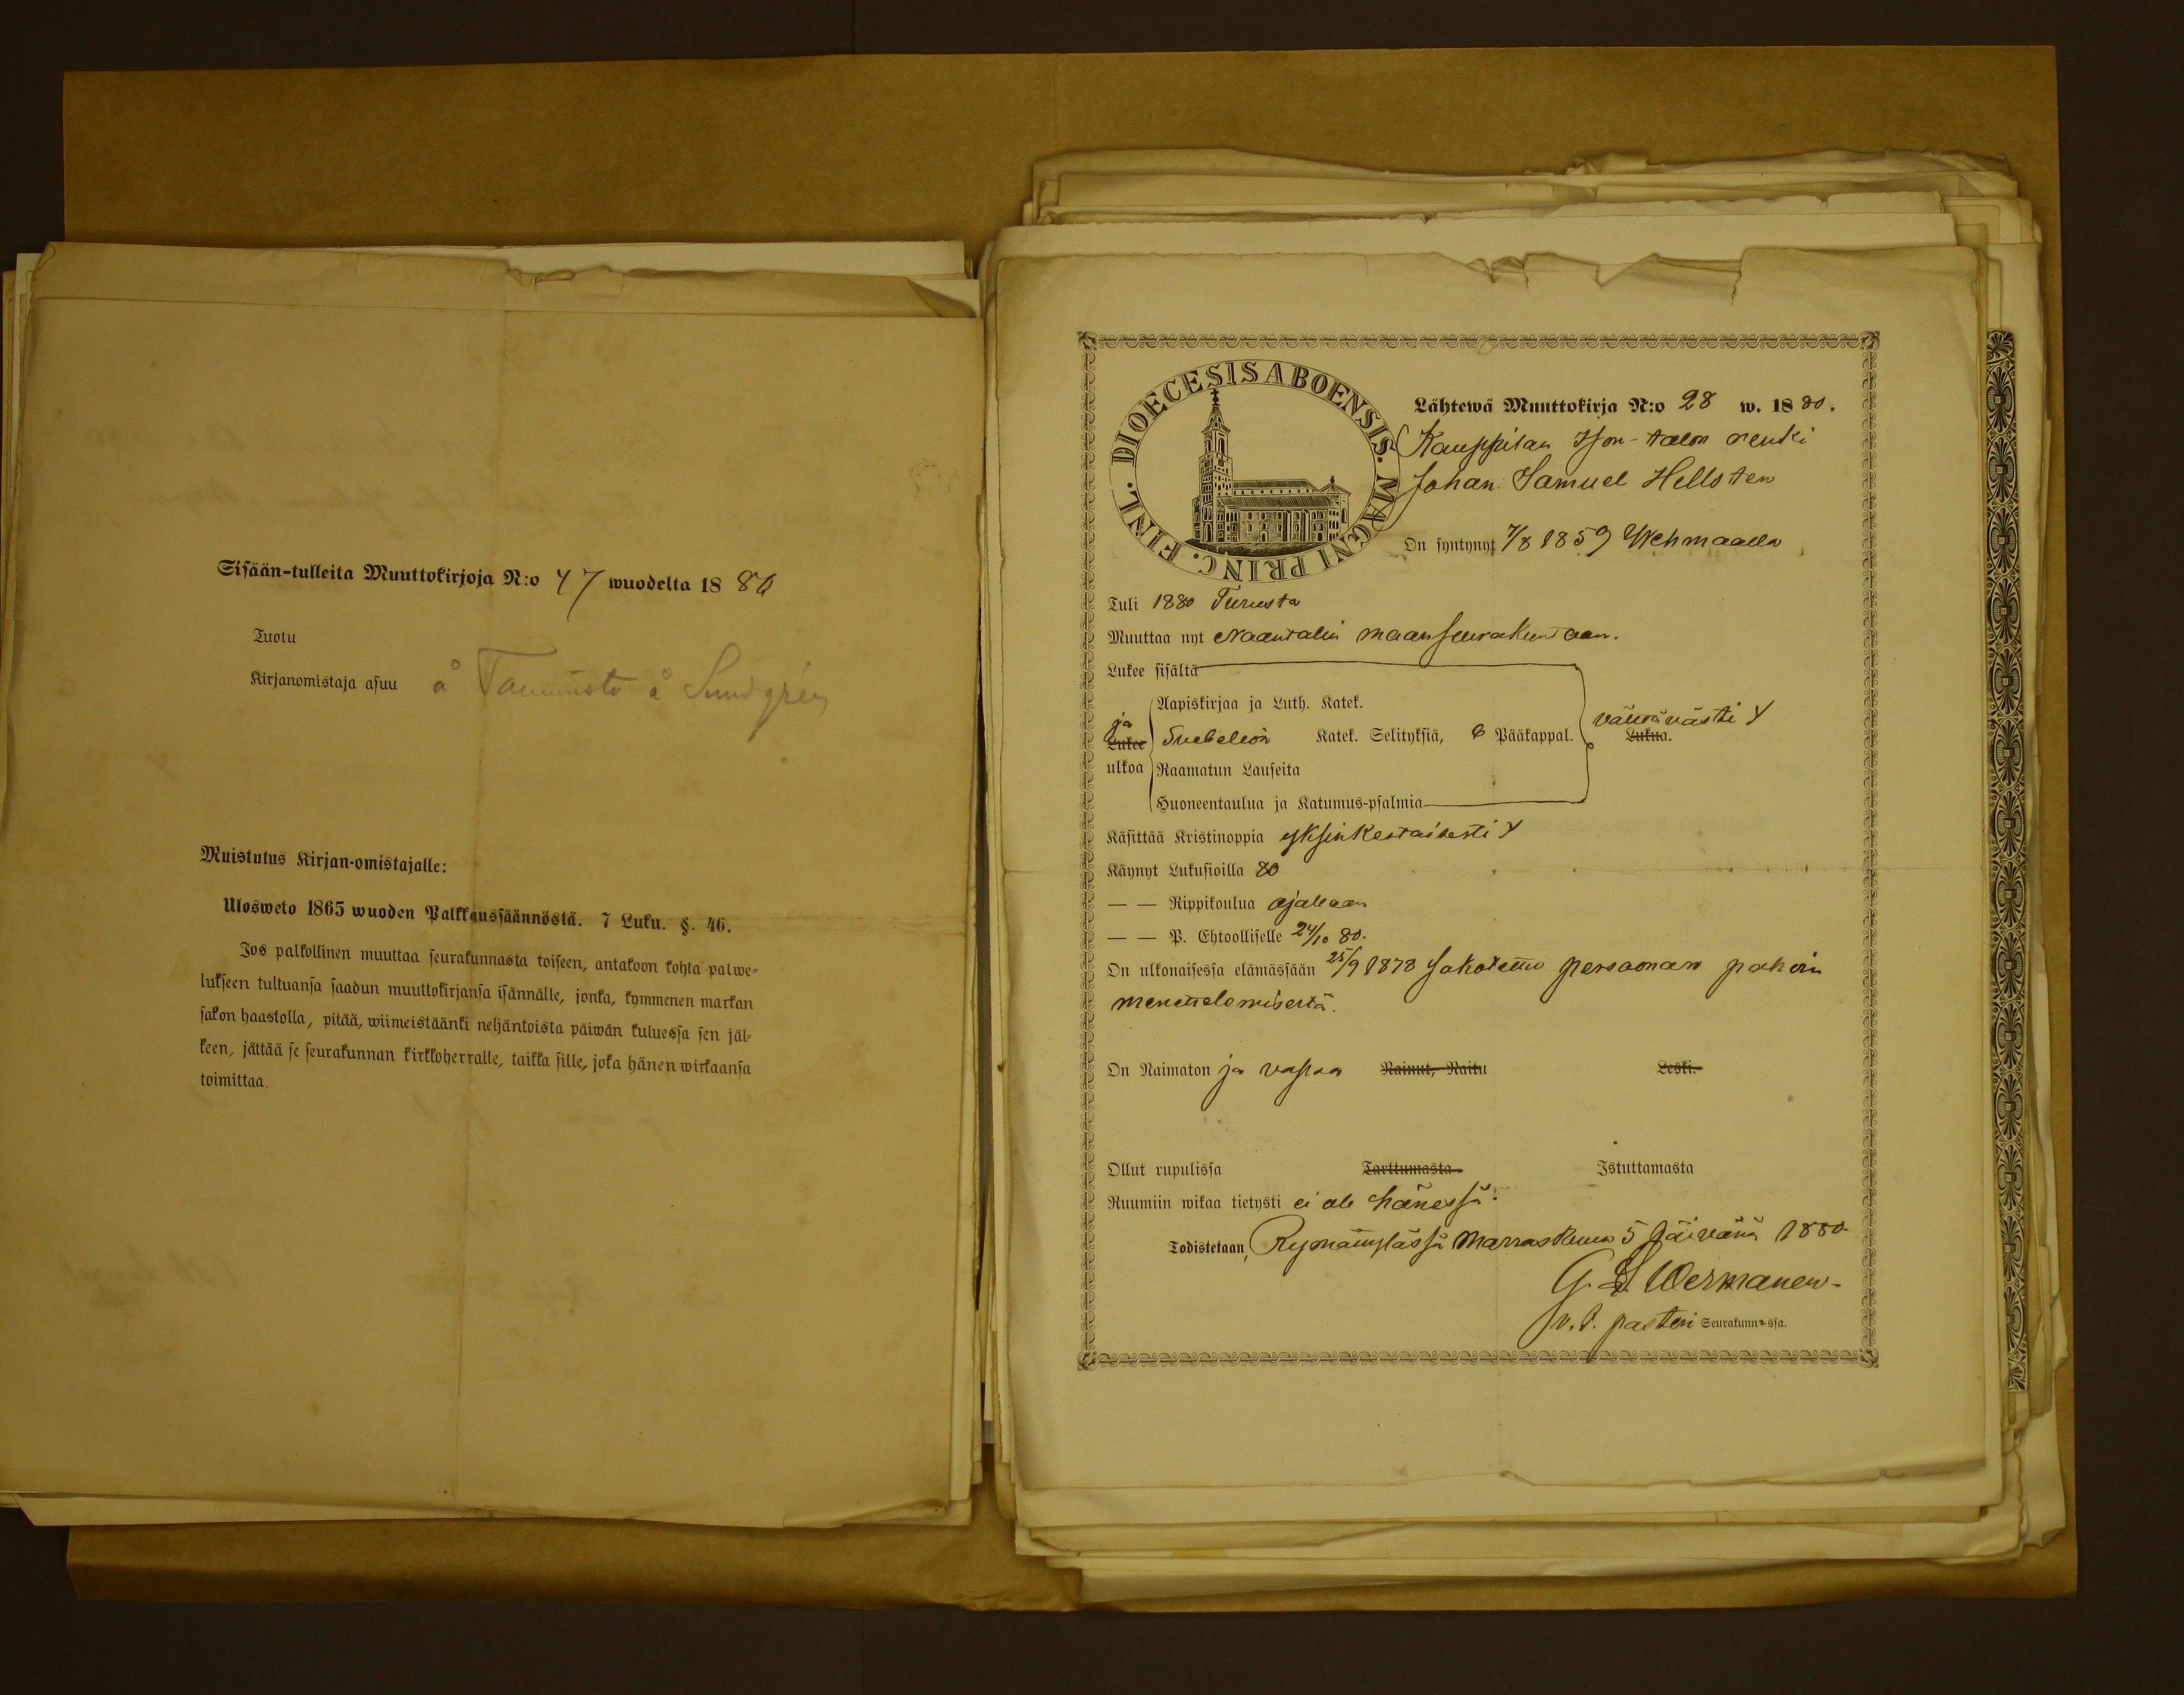 Sisään-tulleita Muuttokirjoja N:o 47 wuodelta 1880
Tuotu
Kirjanomistaja asuu å Tammisto å Sundgrén
Muistutus Kirjan-omistajalle:
Ulosweto 1865 wuoden Palkkaussäännöstä. 7 Luku. §. 46.
Jos palkollinen muuttaa seurakunnasta toiseen, antakoon kohta palwe-
lukseen tultuansa saadun muuttokirjansa isännälle, jonka, kymmenen markan
sakon haastolla, pitää, wiimeistäänki neljäntoista päiwän kuluessa sen jäl-
keen, jättää se seurakunnan kirkkoherralle, taikka sille, joka hänen wirkaansa
toimittaa.
DIOECESIS ABOENSIS. MAGNI PRINC. FINL.
Lähtewä Muuttokirja N:o 28 w. 1880.
Kauppilan Ison-talon renki
Johan Samuel Hellsten
On syntynyt 7/8 1859 Wehmaalla
Tuli 1880 Turusta
Muuttaa nyt Naantalin maanseurakuntaan.
Lukee sisältä
Aapiskirjaa ja Luth. Katek.
ja Lukee ulkoa Suebeleon Katek. Selityksiä, 6 Pääkappal. välttävästi Lukua.
Raamatun Lauseita
Huoneentaulua ja Katumus-psalmia
Käsittää Kristinoppia yksinkertaisesti
Käynyt Lukusioilla 80
— — Rippikoulua ajallaan
— — P. Ehtoolliselle 24/10 80.
On ulkonaisessa elämässään 25/9 1878 sakotettu persoonan pahoin
menettelemisestä.
On Naimaton ja vapaa Nainut, Naitu Leski.
Ollut rupulissa Tarttumasta Istuttamasta
Ruumiin wikaa tietysti ei ole hänessä.
Todistetaan, Rymättylässä Marraskuun 5 päivänä 1880
G. L. Wermanen
v. t. pastori Seurakunn-ssa.